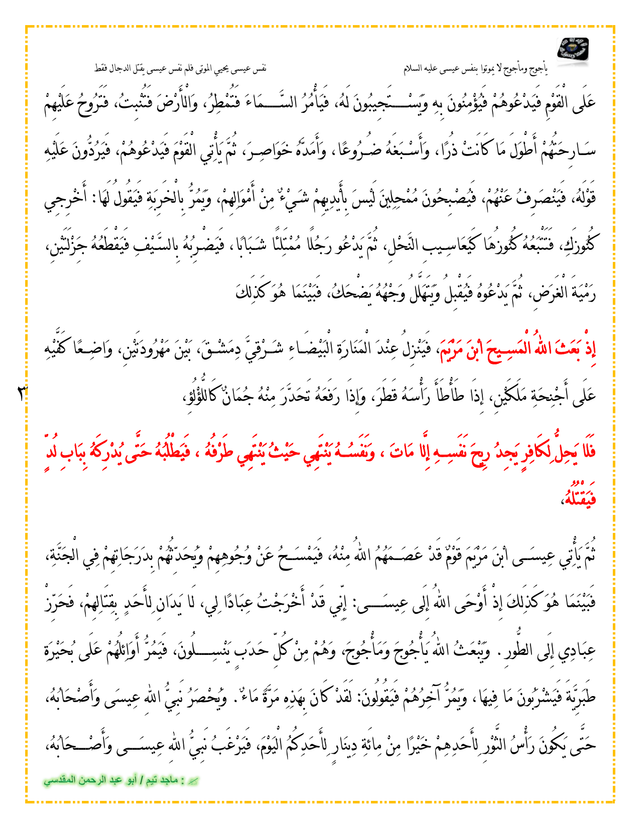 يأجوج ومأجوج لا يموتوا بنفس عيسى عليه السلام
نفس عيسى يحيي الموتى فلم نفس عيسى يقتل الدجال فقط
عَلَى الْقَوْمِ فَيَدْعُوهُمْ فَيُؤْمِنُونَ بِهِ وَيَسْتَجِيبُونَ لَهُ، فَيَأْمُرُ السَّمَاءَ فَتُمْطِرُ، وَالْأَرْضَ فَتُنْبِتُ، فَتَرُوحُ عَلَيْهِمْ
سَارِحَتُهُمْ أَطْوَلَ مَا كَانَتْ ذُرًا، وَأَسْبَغَهُ ضُرُوعًا، وَأَمَدَّهُ خَوَاصِرَ، ثُمَّ يَأْتِي الْقَوْمَ فَيَدْعُوهُمْ، فَيَرُدُّونَ عَلَيْهِ
قَوْلَهُ، فَيَنْصَرِفُ عَنْهُمْ، فَيُصْبِحُونَ مُمْحِلِينَ لَيْسَ بِأَيْدِيهِمْ شَيْءٌ مِنْ أَمْوَالِهِمْ، وَيَمُرُّ بِالْخَرِبَةِ فَيَقُولُ لَهَا: أَخْرِجِي
كُنُوزَكِ، فَتَتْبَعُهُ كُنُوزُهَا كَيَعَاسِيبِ النَّحْلِ، ثُمَّ يَدْعُو رَجُلًا مُمْتَلِئًا شَبَابًا، فَيَضْرِبُهُ بِالسَّيْفِ فَيَقْطَعُهُ جَزْلَتَيْنِ،
رَمْيَةَ الْغَرَضِ، ثُمَّ يَدْعُوهُ فَيُقْبِلُ وَيَتَهَلَّلُ وَجْهُهُ يَضْحَكُ، فَبَيْنَمَا هُوَ كَذَلِكَ
إِذْ بَعَثَ اللهُ الْمَسِيحَ ابْنَ مَرْيَمَ، فَيَنْزِلُ عِنْدَ الْمَنَارَةِ الْبَيْضَاءِ شَرْقِيَّ دِمَشْقَ، بَيْنَ مَهْرُودَتَيْنِ، وَاضِعًا كَفَّيْهِ
عَلَى أَجْنِحَةِ مَلَكَيْنِ، إِذَا طَأْطَأَ رَأْسَهُ قَطَرَ، وَإِذَا رَفَعَهُ تَحَدَّرَ مِنْهُ جُمَانٌ كَاللُّؤْلُؤِ،
٣
فَلَا يَحِلُّ لِكَافِرٍ يَجِدُ رِيحَ نَفَسِهِ إِلَّا مَاتَ ، وَنَفَسُهُ يَنْتَهِي حَيْثُ يَنْتَهِي طَرْفُهُ ، فَيَطْلُبُهُ حَتَّى يُدْرِكَهُ بِبَابِ لُدٍّ
فَيَقْتُلُهُ،
ثُمَّ يَأْتِي عِيسَى ابْنَ مَرْيَمَ قَوْمٌ قَدْ عَصَمَهُمُ اللهُ مِنْهُ، فَيَمْسَحُ عَنْ وُجُوهِهِمْ وَيُحَدِّثُهُمْ بِدَرَجَاتِهِمْ فِي الْجَنَّةِ،
فَبَيْنَمَا هُوَ كَذَلِكَ إِذْ أَوْحَى اللهُ إِلَى عِيسَى: إِنِّي قَدْ أَخْرَجْتُ عِبَادًا لِي، لَا يَدَانِ لِأَحَدٍ بِقِتَالِهِمْ، فَحَرِّزْ
عِبَادِي إِلَى الطُّورِ . وَيَبْعَثُ اللهُ يَأْجُوجَ وَمَأْجُوجَ، وَهُمْ مِنْ كُلِّ حَدَبٍ يَنْسِلُونَ، فَيَمُرُّ أَوَائِلُهُمْ عَلَى بُحَيْرَةِ
طَبَرِيَّةَ فَيَشْرَبُونَ مَا فِيهَا، وَيَمُرُّ آخِرُهُمْ فَيَقُولُونَ: لَقَدْ كَانَ بِهَذِهِ مَرَّةً مَاءٌ. وَيُحْصَرُ نَبِيُّ اللهِ عِيسَى وَأَصْحَابُهُ،
حَتَّى يَكُونَ رَأْسُ الثَّوْرِ لِأَحَدِهِمْ خَيْرًا مِنْ مِائَةِ دِينَارٍ لِأَحَدِكُمُ الْيَوْمَ، فَيَرْغَبُ نَبِيُّ اللهِ عِيسَى وَأَصْحَابُهُ،
: ماجد تيم / أبو عبد الرحمن المقدسي